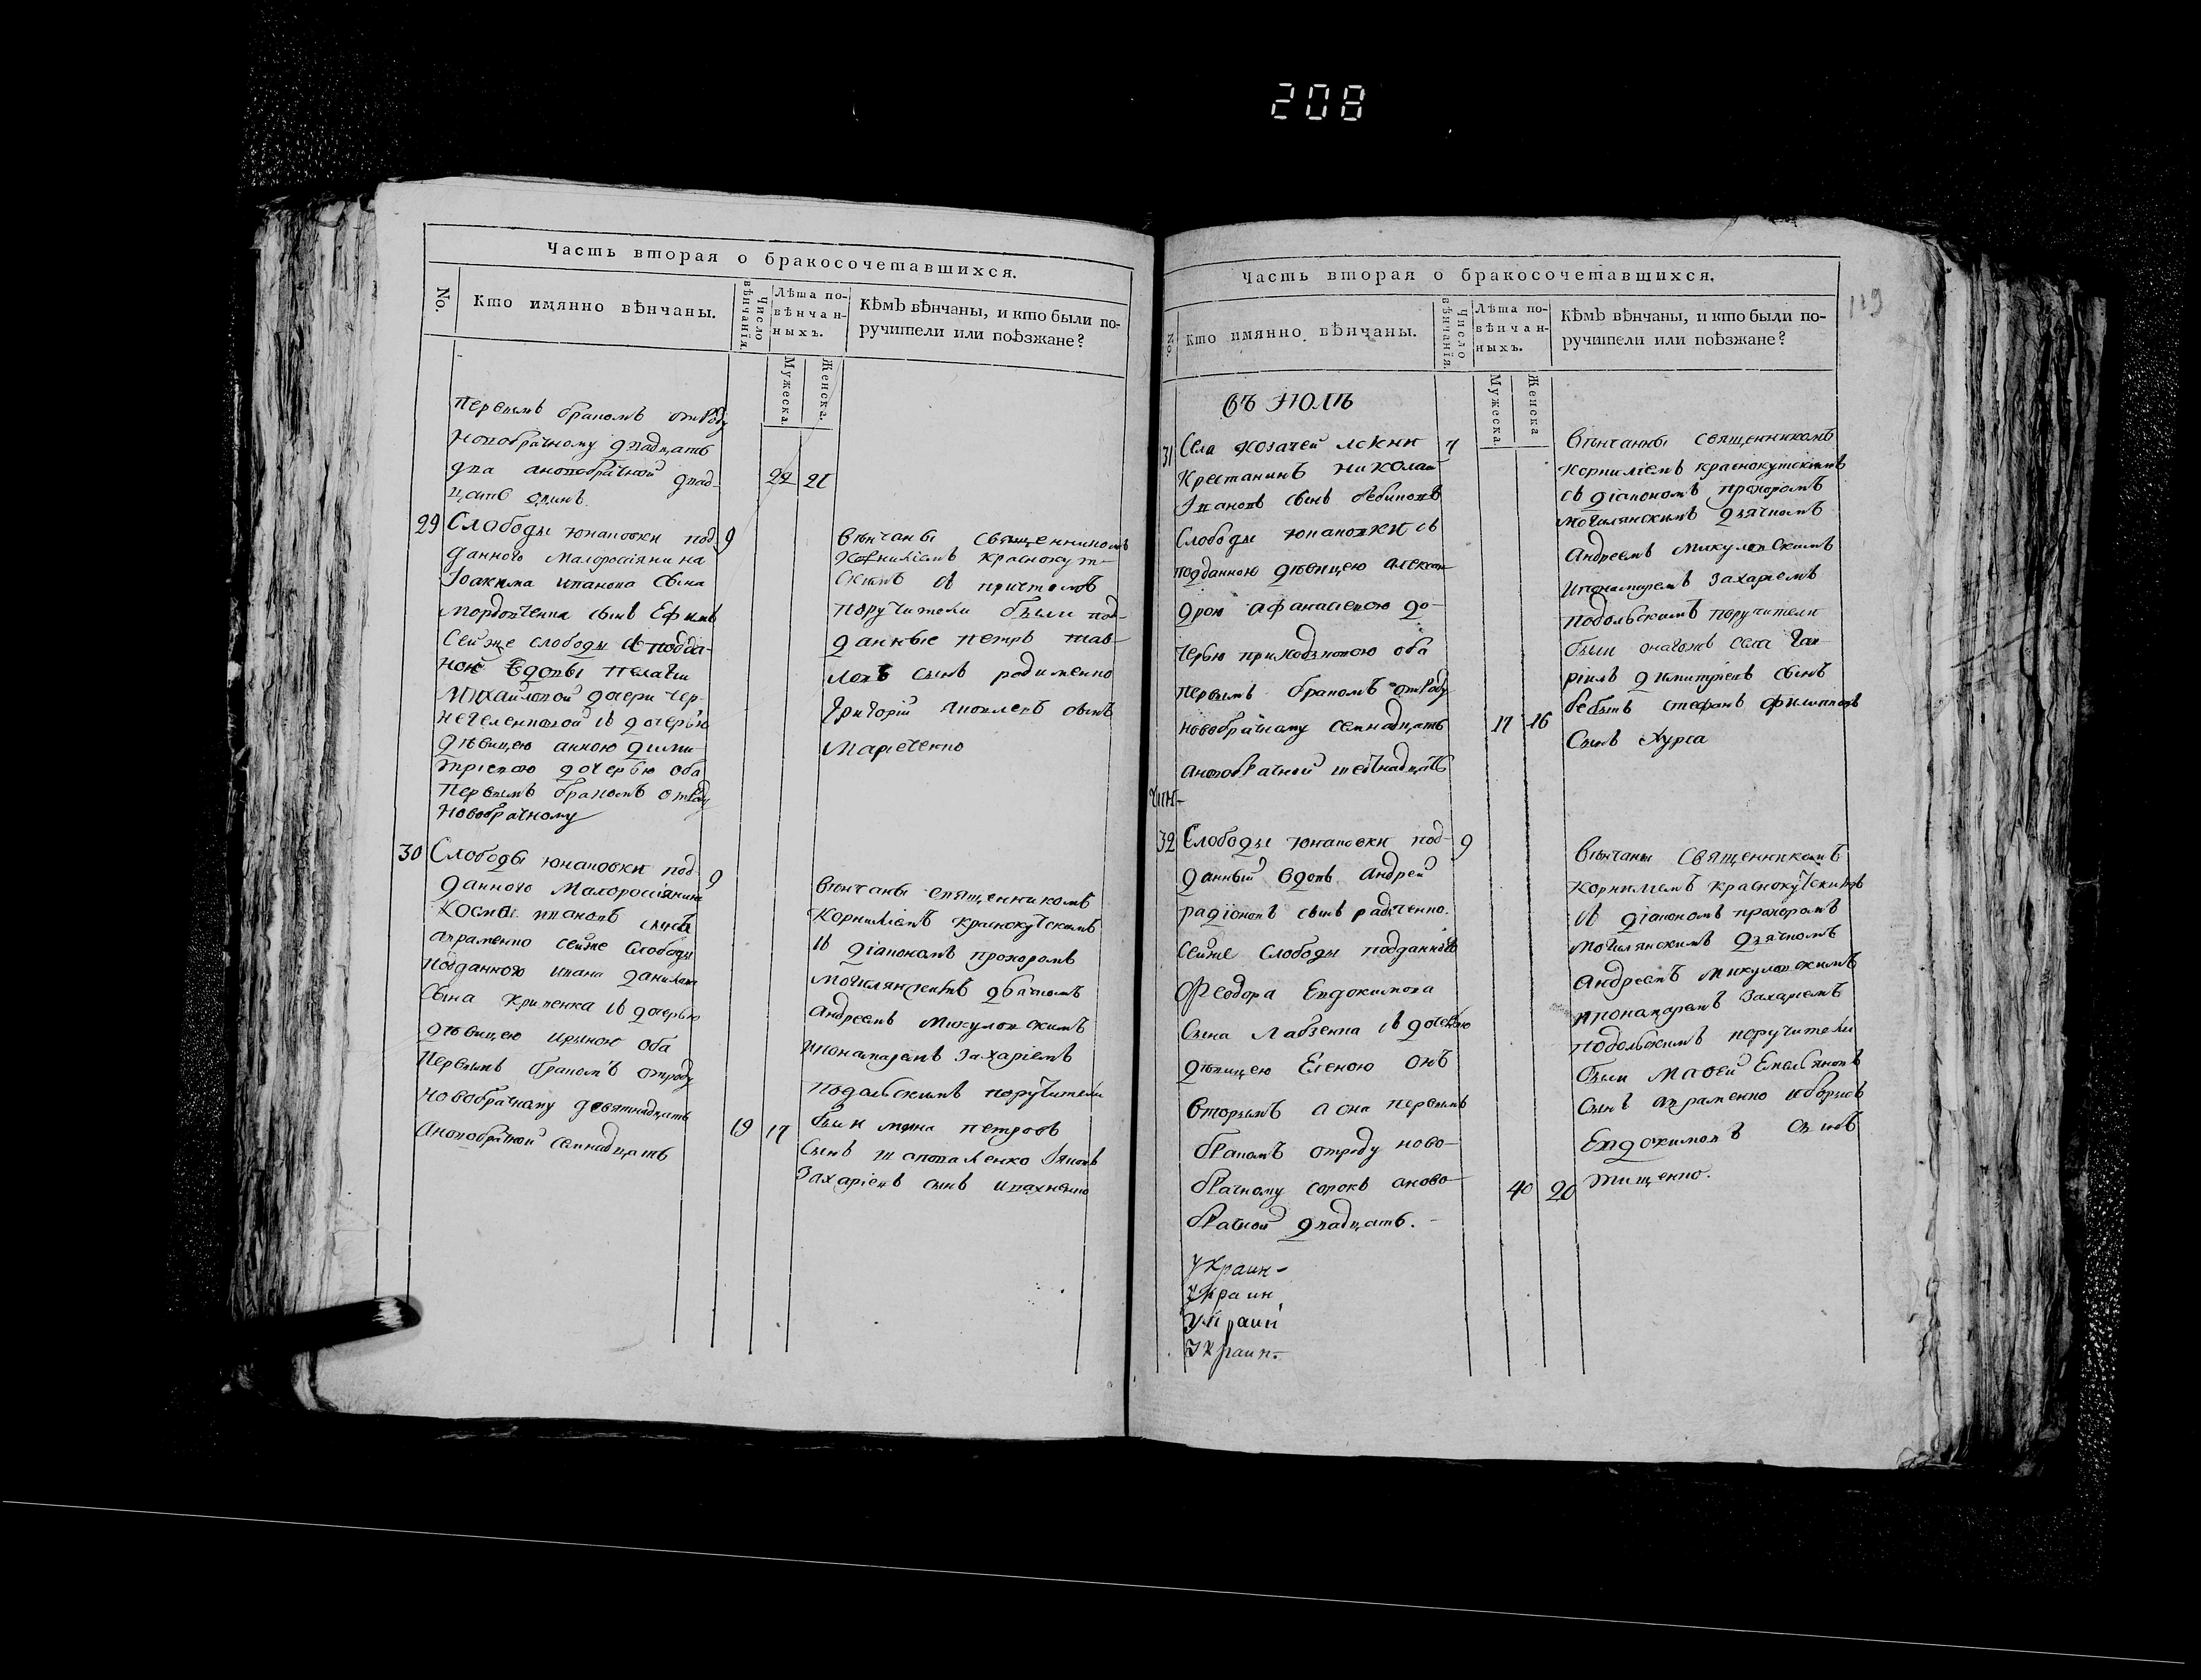 208
Часть вторая о бракосочетавшихся.
No.
Кто имянно вѣнчаны.
Число вѣнчанія.
Лѣта по-
вѣнчан-
ныхъ.
Мужеска.
Женска.
Кѣмъ вѣнчаны, и кто были по-
ручители или поѣзжане?
первымъ бракомъ отроду
новобрачному двадцать
дваановобрачной двад-
цать одинъ
22 21
29 Слободы юнаповки под- 9
данного Малоросіянина
Іоакима иванова сына
сынъ Ефимъ
сейже слободы съ подда-
ной вдовы пелагіи
Михайловой дочери чер-
съ дочерью
дѣвицею анною дими-
тріевою дочерью оба
первымъ бракомъ отроду
новобрачному
вѣнчаны священникомъ
Корниліемъ краснокут-
скимъ съ причтомъ
поручители были под-
данные петръ пав-
ловъ сынъ радименко
Григорій яковлевъ сынъ
Марченко
30 Слободы юнаповки под- 9
данного Малоросіянина
Косма ивановъ сынъ
авраменко сейже слободы
подданного ивана данилова
сына кривенка съ дочерью
дѣвицею ириною оба
первымъ бракомъ отроду
новобрачному девятнадцать
ановобрачной семнадцать
19 17
вѣнчаны священникомъ
Корниліемъ краснокутскимъ
съ діакономъ прохоромъ
могилянскимъ дьячкомъ
Андреемъ Микуловскимъ
ипономаремъ Захаріемъ
подольскимъ поручители
были мина петровъ
сынъ шаповаленко
Захаріевъ сынъ ивахненко
Часть вторая о бракосочетавшихся.
119
No.
Кто имянно вѣнчаны.
Число вѣнчанія.
Лѣта по-
вѣнчан-
ныхъ.
Мужеска.
Женска
Кѣмъ вѣнчаны, и кто были по-
ручители или поѣзжане?
въ Іюлѣ
31 Села козачей локни 4
Крестанинъ николай
Ивановъ сынъ
Слободы юнаповки съ
подданною дѣвицею алексан-
дрою афанасіевою до-
черью приходковою оба
первымъ бракомъ отроду
новобрачному семнадцать
ановобрачной шестнадцать
17 16
вѣнчанны священникомъ
корниліемъ краснокутскимъ
съ діакономъ прохоромъ
могилянскимъ дьячкомъ
Андреемъ Микуловскимъ
ипономаремъ Захаріемъ
подольскимъ поручители
были оногожъ села гав-
рілъ димитріевъ сынъ
стефанъ филиповъ
сынъ хурса
чит-
32 Слободы юнаповки под- 9
данный вдовъ Андрей
радіоновъ сынъ радченко.
сейже слободы подданного
Феодора Евдокимова
сына Лабзенка съ дочерью
дѣвицею Еленою онъ
вторымъ а она первымъ
бракомъ отроду ново-
брачному сорокъ аново-
брачной двадцать.
40 20
вѣнчаны священникомъ
корниліемъ краснокутскимъ
съ діакономъ прохоромъ
могилянскимъ дьячкомъ
андреемъ микуловскимъ
ипономаремъ Захаріемъ
подольскимъ поручители
были Мафей Емельяновъ
сынъ авраменко иборисъ
Евдокимовъ сынъ
тищенко.
Украин-
Украин
Украин
Украин-